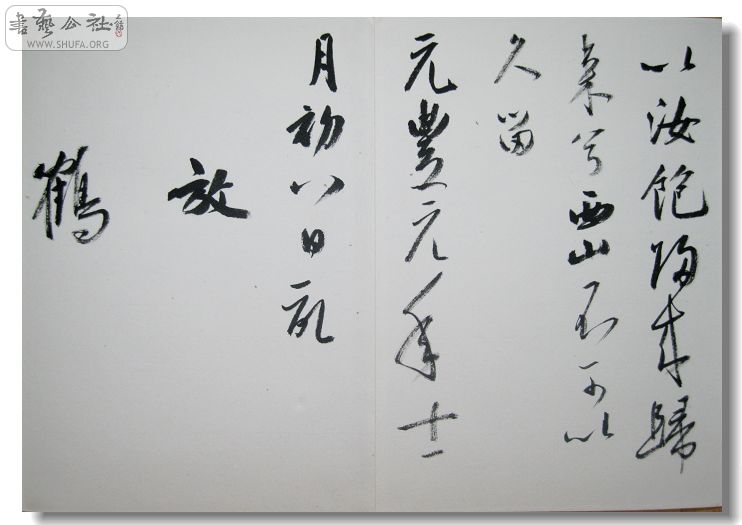 以汝飽歸来歸
来兮西山不可以
久留
元豐元年十一
月初八日記
放
鶴
書藝公社
WWW.SHUFA.ORG